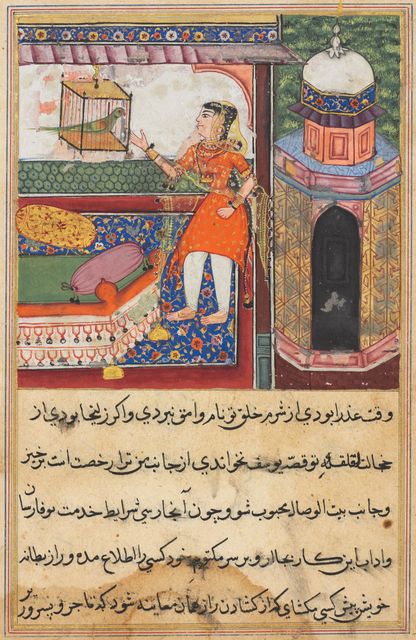 وقت عذرا بودی از شرم خلق تو نام وامق نبردی و اگر زلیخا بودی از
خجالت لقلقه تو قصه یوسف نخواندی از جانب من ترا رخصت است برخیز
و جانب بیت الوصال محبوب شو و چون آنجا رسی شرایط خدمت تو فارسان
و اداب این کار نجا ار و بر سر مکتوم خود کسی را اطلاع مده و راز بطانه
خویش پیش کسی مکشای که از کشادن راز همان معاینه شود که تاجر و پسر و ر